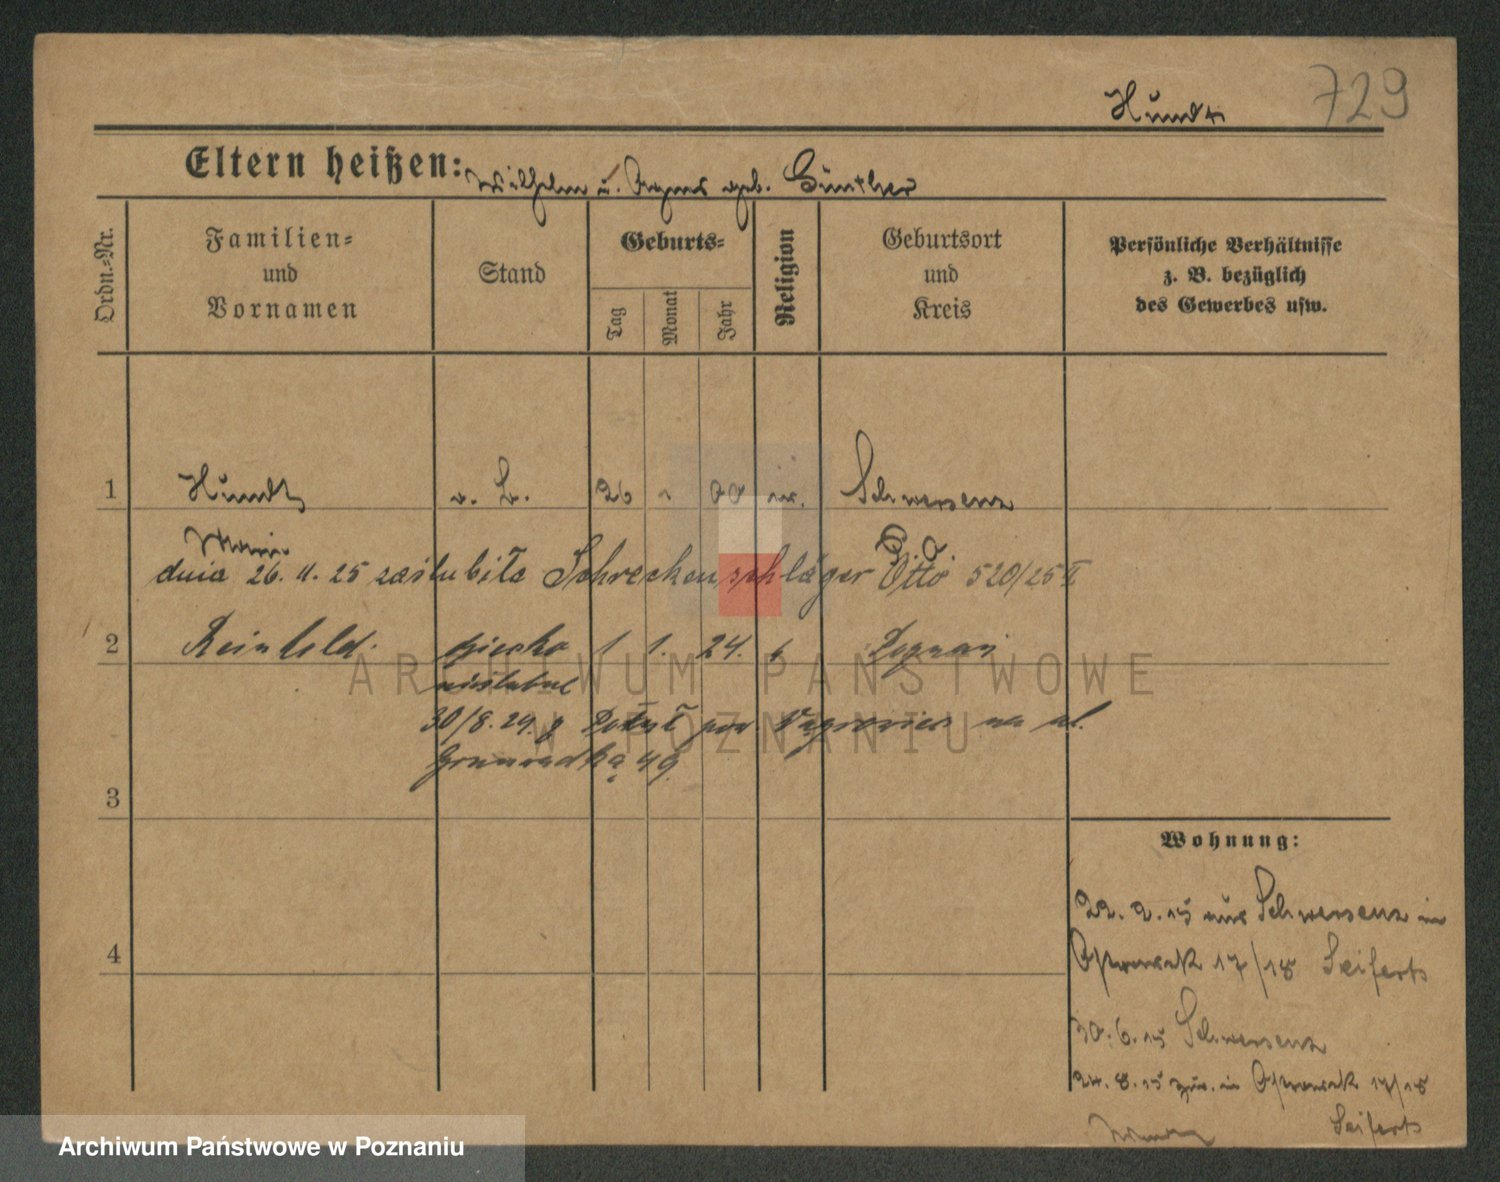 Hundt 729
Eltern heißen: Wilhelm u. Agnes geb. Günther
Ordn.-Nr.
Familien-
und
Vornamen
Stand
Geburts-
Tag Monat Jahr
Religion
Geburtsort
und
Kreis
Persönliche Verhältnisse
z. B. bezüglich
des Gewerbes usw.
1 Hundt 26 00 Schwersenz
dnia 26. 11. 25 zaślubiła Schreckenschläger Otto 520/25 II
2 Reinhold dziecko 1 1. 24. Poznań
nieślubne
30/8. 24. na ul.
49
3
4
Wohnung:
22. 2. 15 aus Schwersenz in
17/18 Seiferts
30. 6. 15 Schwersenz
24. 8. 15 zur. in 17/18
Seiferts
ARCHIWUM PAŃSTWOWE
W POZNANIU
Archiwum Państwowe w Poznaniu